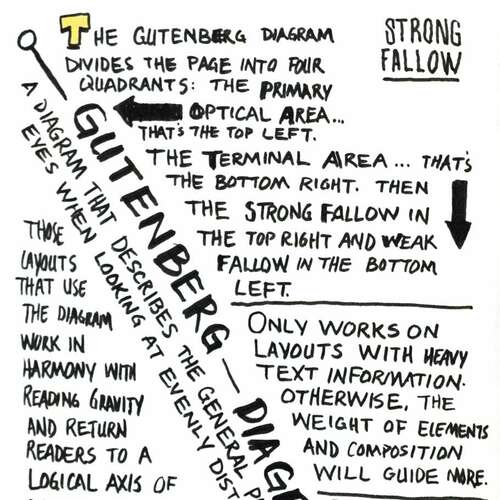 THE GUTENBERG DIAGRAM
DIVIDES THE PAGE INTO FOUR
QUADRANTS: THE PRIMARY
OPTICAL AREA...
THAT'S THE TOP LEFT.
THE TERMINAL AREA... THAT'S
THE BOTTOM RIGHT. THEN
THE STRONG FALLOW IN
THE TOP RIGHT AND WEAK
FALLOW IN THE BOTTOM
LEFT.
STRONG
FALLOW
GUTENBERG — DIAG
A DIAGRAM THAT DESCRIBES THE GENERAL
EYES WHEN LOOKING AT EVENLY
THOSE
LAYOUTS
THAT USE
THE DIAGRAM
WORK IN
HARMONY WITH
READING GRAVITY
AND RETURN
READERS TO A
LOGICAL AXIS OF
ONLY WORKS ON
LAYOUTS WITH HEAVY
TEXT INFORMATION.
OTHERWISE, THE
WEIGHT OF ELEMENTS
AND COMPOSITION
WILL GUIDE MORE.